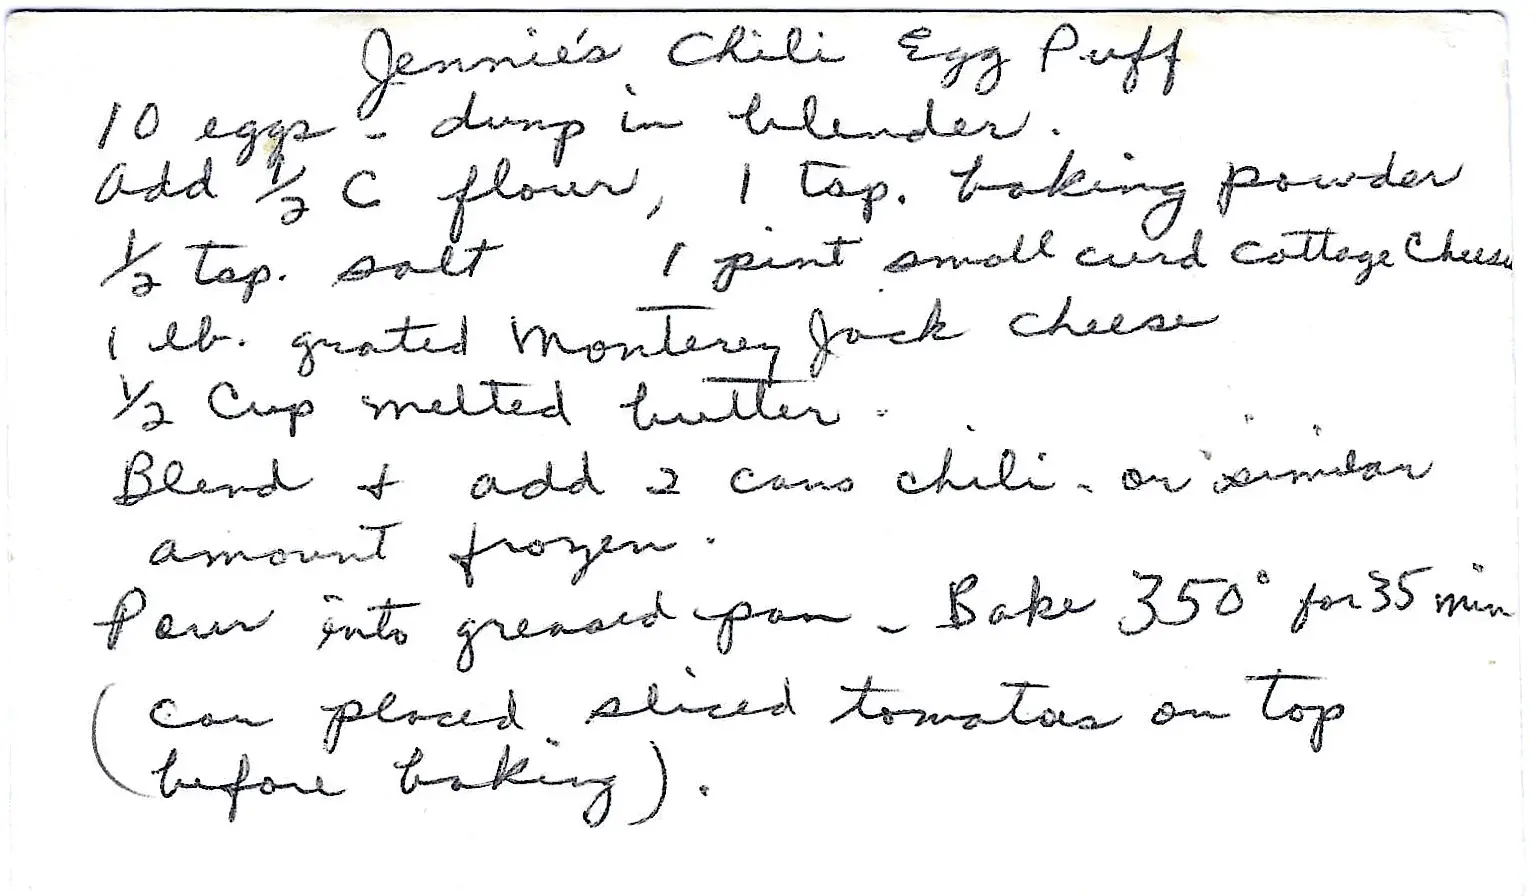 Jennie's Chili Egg Puff
10 eggs - dump in blender.
Add 1/2 C flour, 1 tsp. baking powder
1/2 tsp. salt 1 pint small curd cottage Cheese
1 lb. grated Monterey Jack cheese
1/2 Cup melted butter.
Blend + add 2 cans chili - or similar
amount frozen.
Pour into greased pan - Bake 350° for 35 min
(can placed sliced tomatoes on top
before baking).